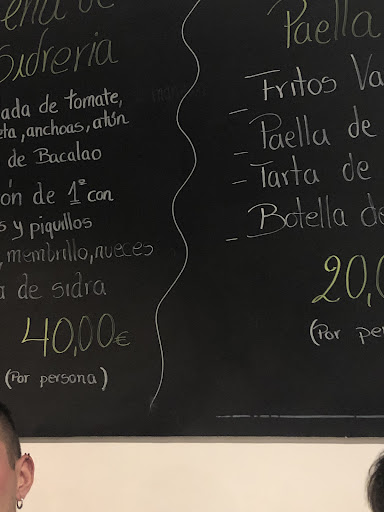 enú de
Sidreria
ada de tomate,
eta, anchoas, atún
de Bacalao
ón de 1ª con
s y piquillos
, membrillo, nueces
a de sidra
40,00€
(Por persona)
Paella
- Fritos Va
- Paella de
- Tarta de
- Botella de
20,0
(Por per